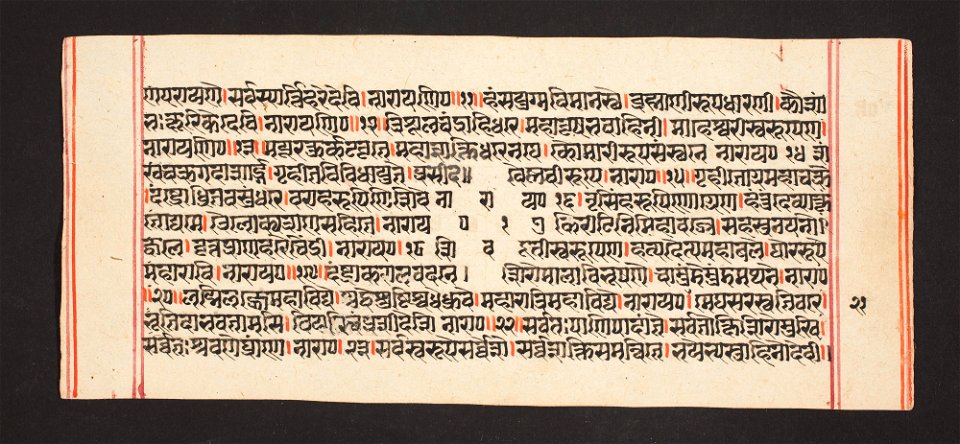 णपरायणे।सर्वस्यार्त्तिहरेदेवि।नारायणिण॥११॥हंसयुक्तविमानस्थे।ब्रह्माणीरूपधारणी।कौशां
भःक्षरिकेदेवि।नारायणिण॥१२॥त्रिशूलचंद्राहिधरे।महावृषभवाहिनी।माहेश्वरीस्वरूपेण।
नारायणिण॥१३॥मयूरकुर्कटवृते।महाशक्तिधरेनघे।कौमारीरूपसंस्थाने नारायण १४ शं
खचक्रगदाशार्ङ्ग।गृहीतेविविधायुधे।प्रसीद॥ वैष्णवीरूपे।नाराय॥१५॥गृहीतोग्रमहाचक्रे
।दंष्ट्राधृतवसुंधरे।वराहरूपिणिशिवे ना रा यण १६।नृसिंहरूपेणोग्रेण।हंतुंदैत्यान्कृ
तोद्यमे।त्रैलोक्यत्राणसहिते।नाराय ण १७ किरीटिनिमहावज्रे।सहस्रनयनो
ज्वले।वृत्रप्राणहरेचैंद्री।नारायण।१८ शि व दूतीस्वरूपेण।हतदैत्यमहाबले।घोररूपे
महारावे।नारायण॥१९॥दंष्ट्राकरालवदने। शिरोमालाविभूषणे।चामुंडेमुंडमथने।नाराय
॥२०॥लक्ष्मिलज्जेमहाविद्ये।श्रद्धेपुष्टिस्वधेध्रुवे।महारात्रिमहाविद्ये।नारायण।मेधेसरस्वतिवरे २१
भूतिबाभ्रवितामसि।नियतेत्वंप्रसीदेशे नाराय॥२२॥सर्वतःपाणिपादांते।सर्वतोक्षिशिरोमुखे
सर्वतःश्रवणघ्राणे।नाराय।२३।सर्वस्वरूपेसर्व्वेशे।सर्व्वशक्तिसमन्विते।भयेभ्यस्त्राहिनोदेवी।